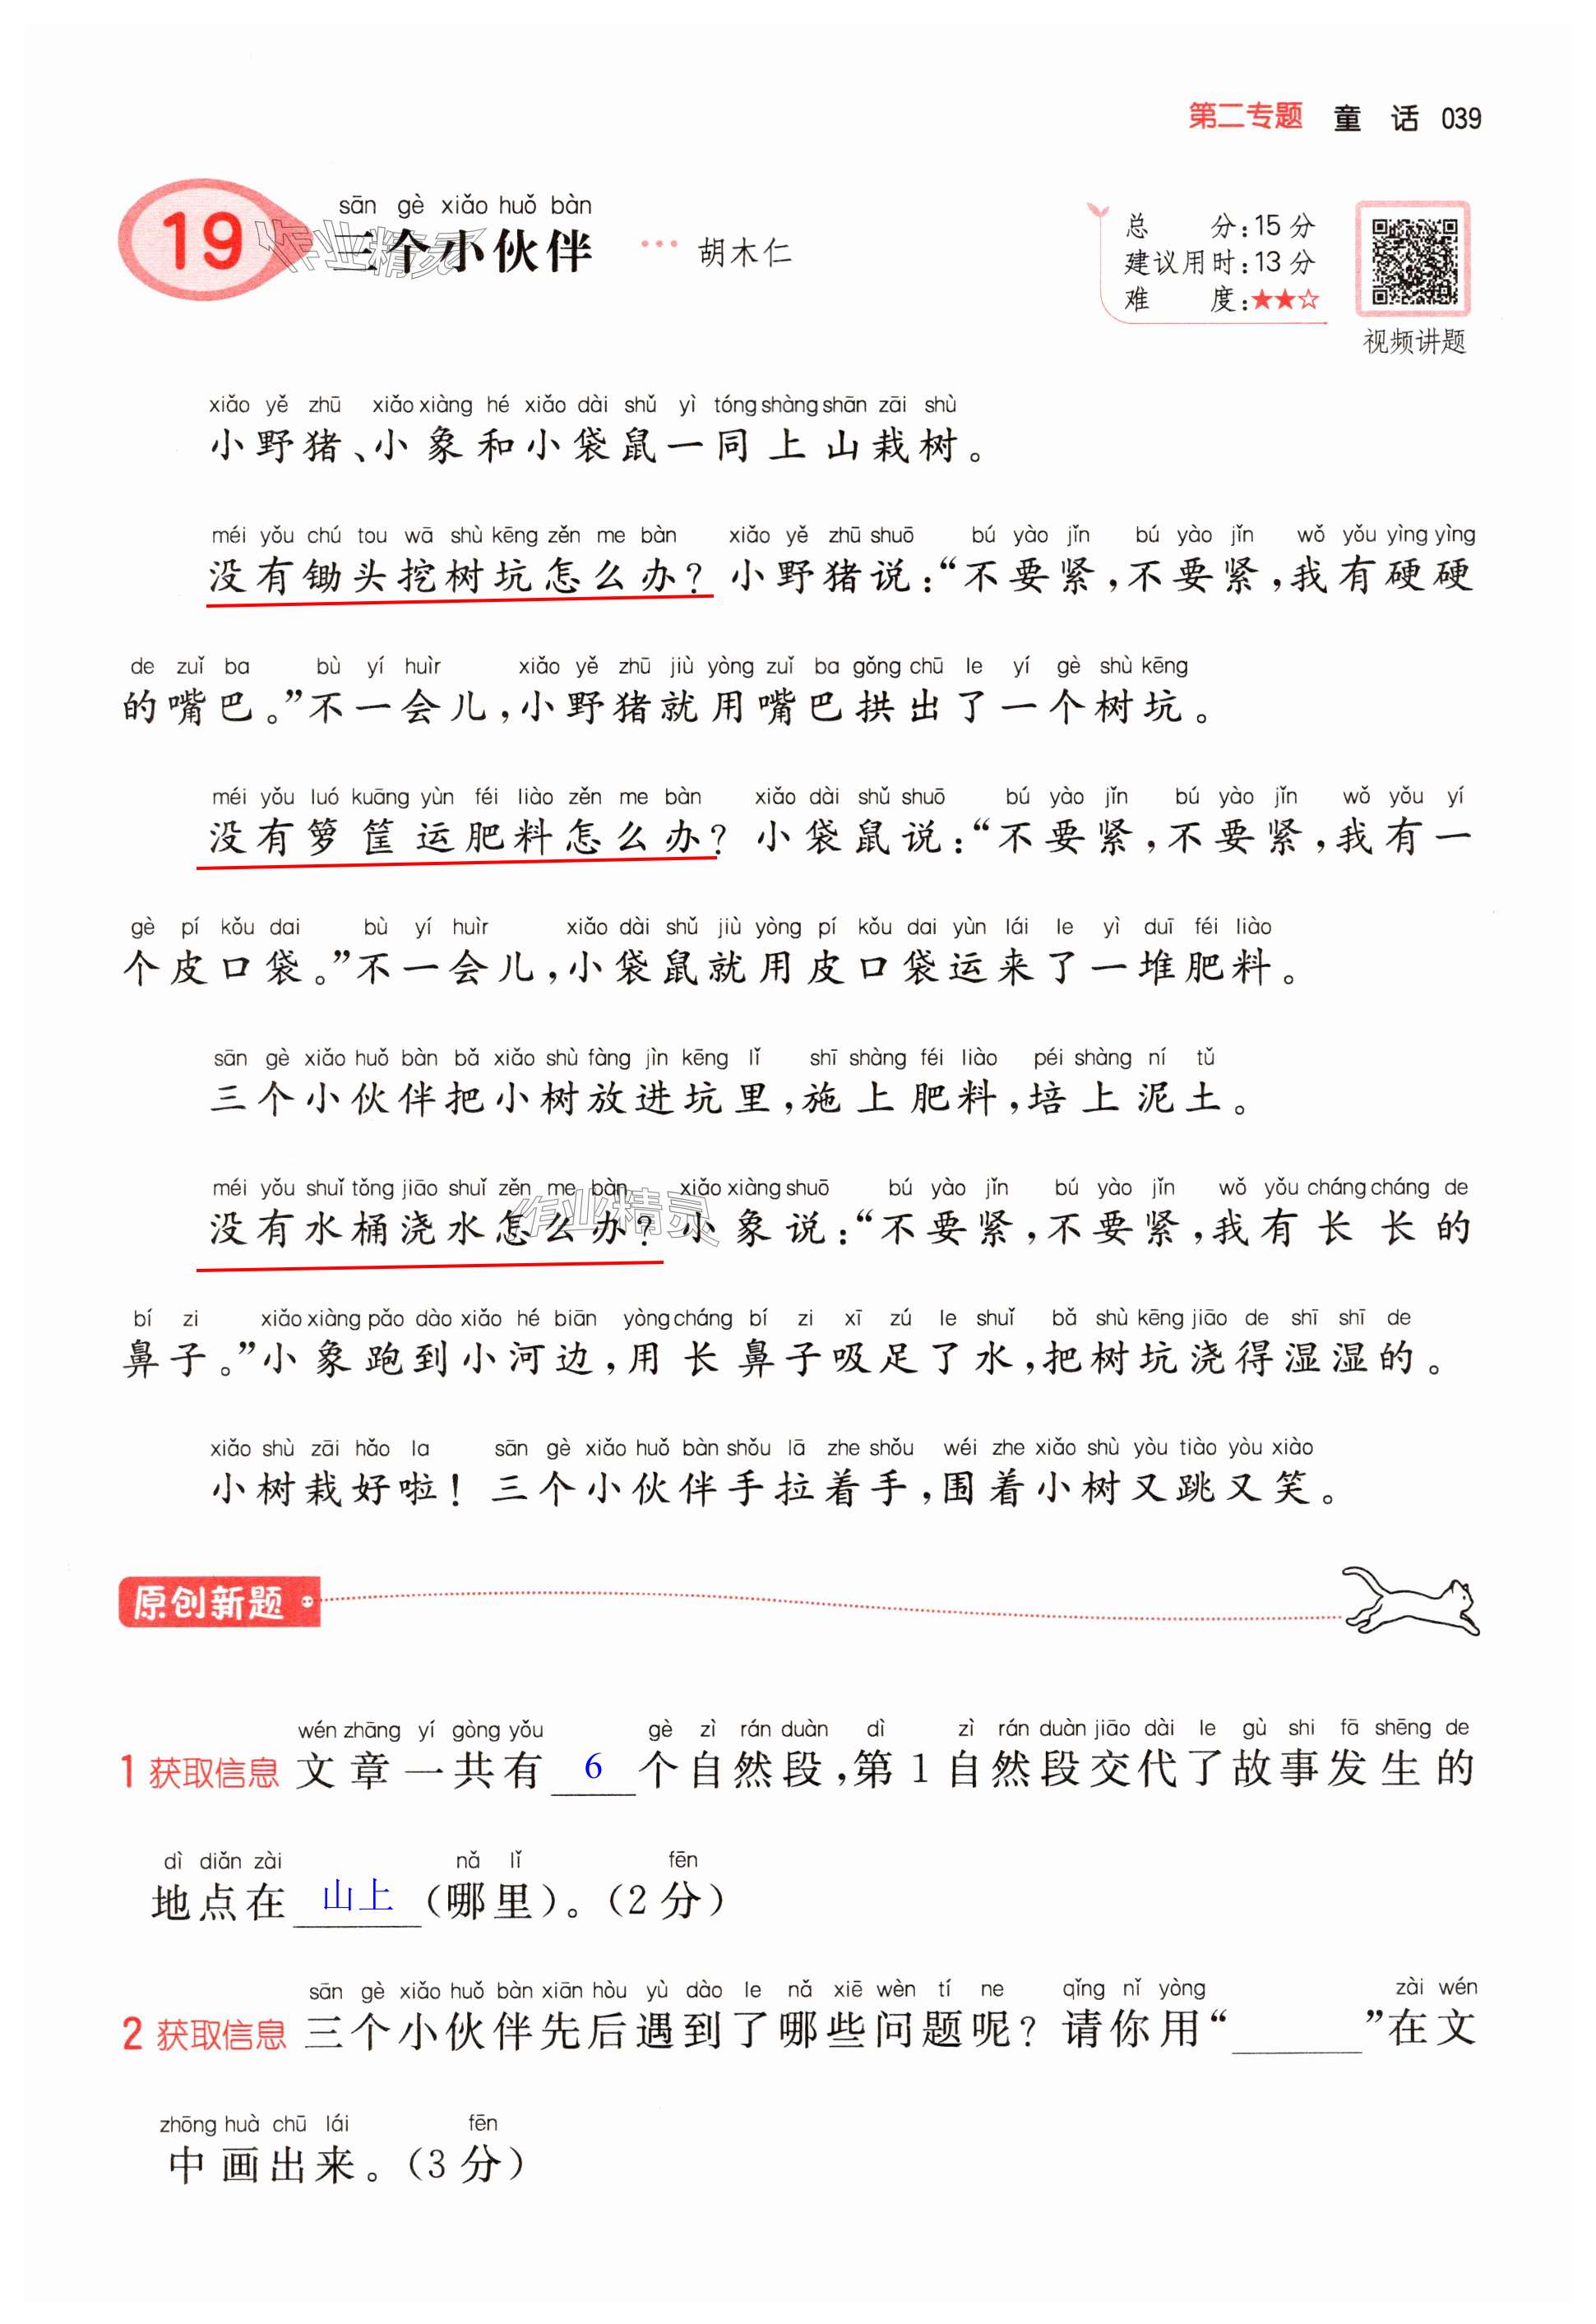 第二专题 童 话 039
sān gè xiǎo huǒ bàn
19 三个小伙伴 ··· 胡木仁
总 分:15分
建议用时:13分
难 度:★★☆
视频讲题
xiǎo yě zhū xiǎo xiàng hé xiǎo dài shǔ yì tóng shàng shān zāi shù
小野猪、小象和小袋鼠一同上山栽树。
méi yǒu chú tou wā shù kēng zěn me bàn xiǎo yě zhū shuō bú yào jǐn bú yào jǐn wǒ yǒu yìng yìng
没有锄头挖树坑怎么办?小野猪说:“不要紧,不要紧,我有硬硬
de zuǐ ba bù yí huìr xiǎo yě zhū jiù yòng zuǐ ba gǒng chū le yí gè shù kēng
的嘴巴。”不一会儿,小野猪就用嘴巴拱出了一个树坑。
méi yǒu luó kuāng yùn féi liào zěn me bàn xiǎo dài shǔ shuō bú yào jǐn bú yào jǐn wǒ yǒu yí
没有箩筐运肥料怎么办?小袋鼠说:“不要紧,不要紧,我有一
gè pí kǒu dai bù yí huìr xiǎo dài shǔ jiù yòng pí kǒu dai yùn lái le yì duī féi liào
个皮口袋。”不一会儿,小袋鼠就用皮口袋运来了一堆肥料。
sān gè xiǎo huǒ bàn bǎ xiǎo shù fàng jìn kēng lǐ shī shàng féi liào péi shàng ní tǔ
三个小伙伴把小树放进坑里,施上肥料,培上泥土。
méi yǒu shuǐ tǒng jiāo shuǐ zěn me bàn xiǎo xiàng shuō bú yào jǐn bú yào jǐn wǒ yǒu cháng cháng de
没有水桶浇水怎么办?小象说:“不要紧,不要紧,我有长长的
bí zi xiǎo xiàng pǎo dào xiǎo hé biān yòng cháng bí zi xī zú le shuǐ bǎ shù kēng jiāo de shī shī de
鼻子。”小象跑到小河边,用长鼻子吸足了水,把树坑浇得湿湿的。
xiǎo shù zāi hǎo la sān gè xiǎo huǒ bàn shǒu lā zhe shǒu wéi zhe xiǎo shù yòu tiào yòu xiào
小树栽好啦!三个小伙伴手拉着手,围着小树又跳又笑。
原创新题
wén zhāng yí gòng yǒu gè zì rán duàn dì zì rán duàn jiāo dài le gù shi fā shēng de
1 获取信息 文章一共有 6 个自然段,第1自然段交代了故事发生的
dì diǎn zài nǎ lǐ fēn
地点在 山上 (哪里)。(2分)
sān gè xiǎo huǒ bàn xiān hòu yù dào le nǎ xiē wèn tí ne qǐng nǐ yòng zài wén
2 获取信息 三个小伙伴先后遇到了哪些问题呢?请你用“______”在文
zhōng huà chū lái fēn
中画出来。(3分)
作业精灵
作业精灵